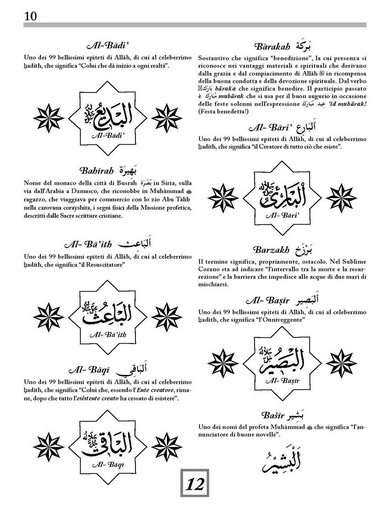 10
Al-Bādi'
Uno dei 99 bellissimi epiteti di Allāh, di cui al celeberrimo
ḥadīth, che significa "Colui che dà inizio a ogni realtà".
البديع
Al-Bādi'
Baḥīrah بَحِيرَة
Nome del monaco della città di Busrah بُصْرَة in Siria, sulla
via dall'Arabia a Damasco, che riconobbe in Muḥammad ﷺ
ragazzo, che viaggiava per commercio con lo zio Abu Tālib
nella carovana corayshita, i segni fisici della Missione profetica,
descritti dalle Sacre scritture cristiane.
Al- Bā'ith اَلْبَاعِث
Uno dei 99 bellissimi epiteti di Allāh, di cui al celeberrimo
ḥadīth, che significa "il Resuscitatore"
الباعث
Al- Bā'ith
Al- Bāqi اَلْبَاقِي
Uno dei 99 bellissimi epiteti di Allāh, di cui al celeberrimo
ḥadīth, che significa "Colui che, essendo l'Ente creatore, rima-
ne, dopo che tutto l'esistente creato ha cessato di esistere".
الباقي
Al- Bāqi
Bàrakah بَرَكَة
Sostantivo che significa "benedizione", la cui presenza si
riconosce nei vantaggi materiali e spirituali che derivano
dalla grazia e dal compiacimento di Allāh in ricompensa
della buona condotta e della devozione spirituale. Dal verbo
bāraka che significa benedire. Il participio passato
è mubārak che si usa per il buon augurio in occasione
delle feste solenni nell'espressione 'id mubārak!
(Festa benedetta!)
Al- Bāri' اَلْبَارِئ
Uno dei 99 bellissimi epiteti di Allāh, di cui al celeberrimo
ḥadīth, che significa "il Creatore di tutto ciò che esiste".
البارئ
Al- Bāri'
Barzakh بَرْزَخ
Il termine significa, propriamente, ostacolo. Nel Sublime
Corano sta ad indicare "l'intervallo tra la morte e la resur-
rezione" e la barriera che impedisce alle acque di due mari di
mischiarsi.
Al- Baṣir اَلْبَصِير
Uno dei 99 bellissimi epiteti di Allāh, di cui al celeberrimo
ḥadīth, che significa "l'Onniveggente"
البصير
Al- Baṣir
Bašir بَشِير
Uno dei nomi del profeta Muḥàmmad ﷺ che significa "l'an-
nunciatore di buone novelle".
البشير
12